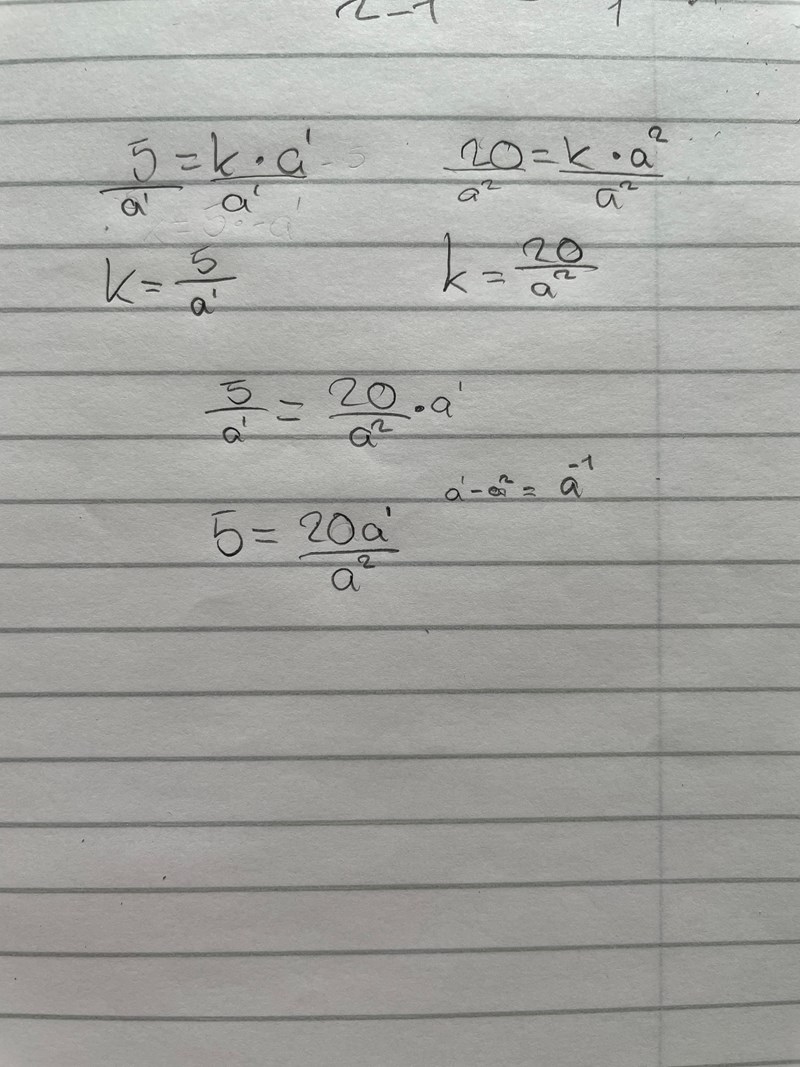 2-1 1
5 = k · a¹ 20 = k · a²
a¹ a¹ a² a²
k = 5/a¹ k = 20/a²
5/a¹ = 20/a² · a¹
a¹ - a² = a⁻¹
5 = 20a¹/a²